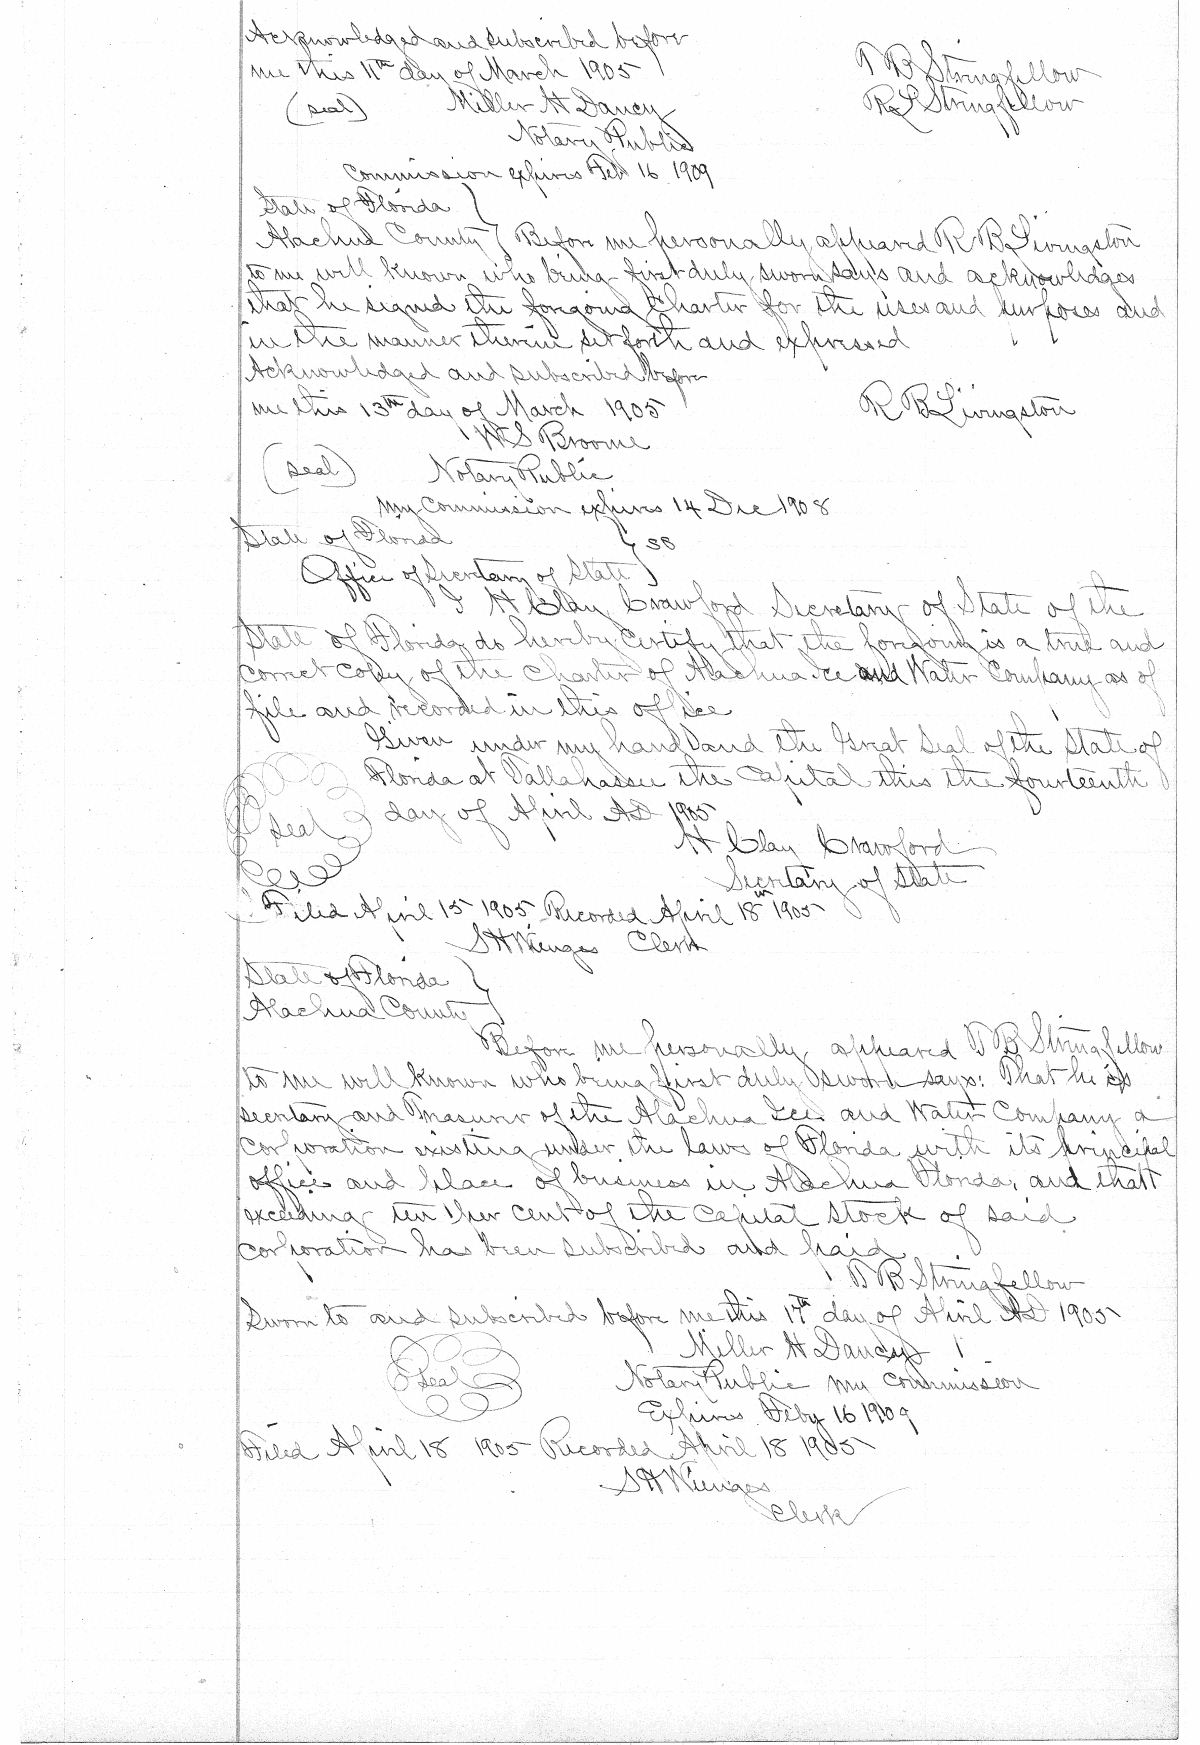 Acknowledged and subscribed before
me this 11th day of March 1905
T B Stringfellow
(seal) Miller H Dancy
R L Stringfellow
Notary Public
Commission expires Feb 16 1909
State of Florida
Alachua County } Before me personally appeared R B Livingston
to me well known who being first duly sworn says and acknowledges
that he signed the foregoing Charter for the uses and purposes and
in the manner therein set forth and expressed
Acknowledged and subscribed before
me this 13th day of March 1905 R B Livingston
W S Broome
(seal) Notary Public
my commission expires 14 Dec 1908
State of Florida } ss
Office of Secretary of State
I H Clay Crawford Secretary of State of the
State of Florida do hereby certify that the foregoing is a true and
correct copy of the Charter of Alachua Ice and Water Company as of
file and recorded in this office
Given under my hand and the Great Seal of the State of
Florida at Tallahassee the Capital this the fourteenth
Seal day of April AD 1905
H Clay Crawford
Secretary of State
Filed April 15 1905 Recorded April 18th 1905
S H Wienges Clerk
State of Florida }
Alachua County
Before me personally appeared T B Stringfellow
to me well known who being first duly sworn says: That he is
secretary and Treasurer of the Alachua Ice and Water Company a
corporation existing under the laws of Florida with its principal
office and place of business in Alachua Florida, and that
exceeding ten per cent of the capital stock of said
corporation has been subscribed and paid
T B Stringfellow
Sworn to and subscribed before me this 17th day of April AD 1905
Miller H Dancy
Seal Notary Public my commission
Expires Feby 16 1909
Filed April 18 1905 Recorded April 18 1905
S H Wienges
Clerk